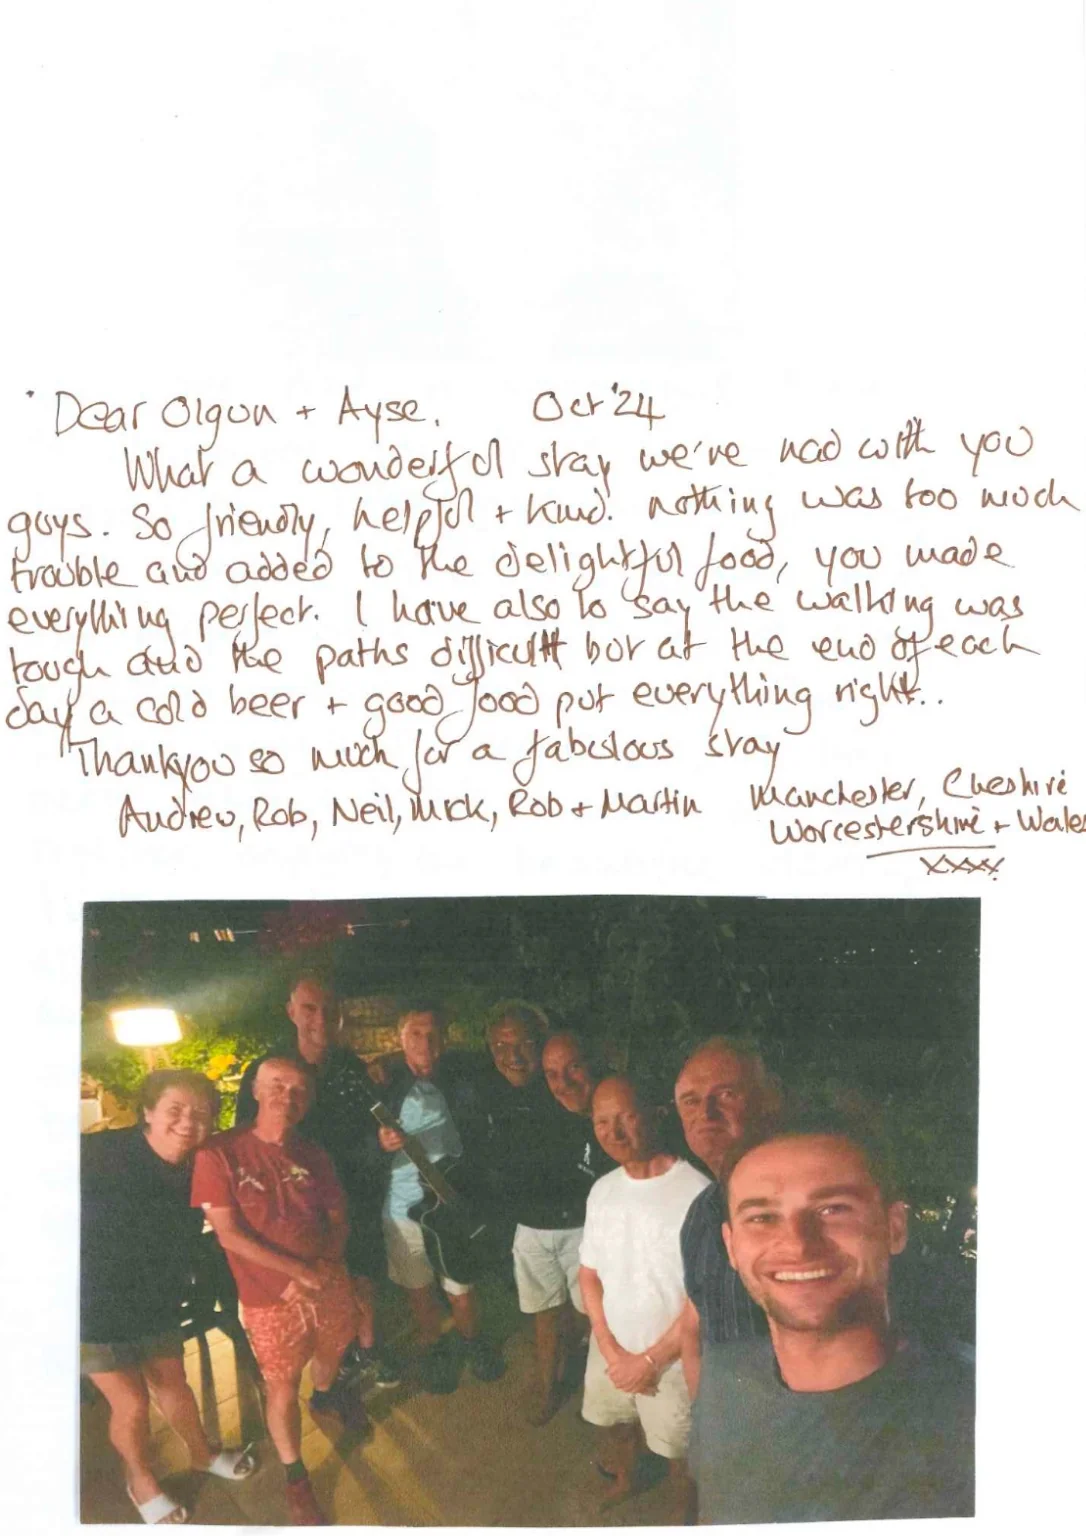 Dear Olgun + Ayse. Oct '24
What a wonderful stay we've had with you
guys. So friendly, helpful + kind. nothing was too much
trouble and added to the delightful food, you made
everything perfect. I have also to say the walking was
tough and the paths difficult but at the end of each
day a cold beer + good food put everything right..
Thankyou so much for a fabulous stay
Andrew, Rob, Neil, Mick, Rob + Martin Manchester, Cheshire
Worcestershire + Wales
xxxx